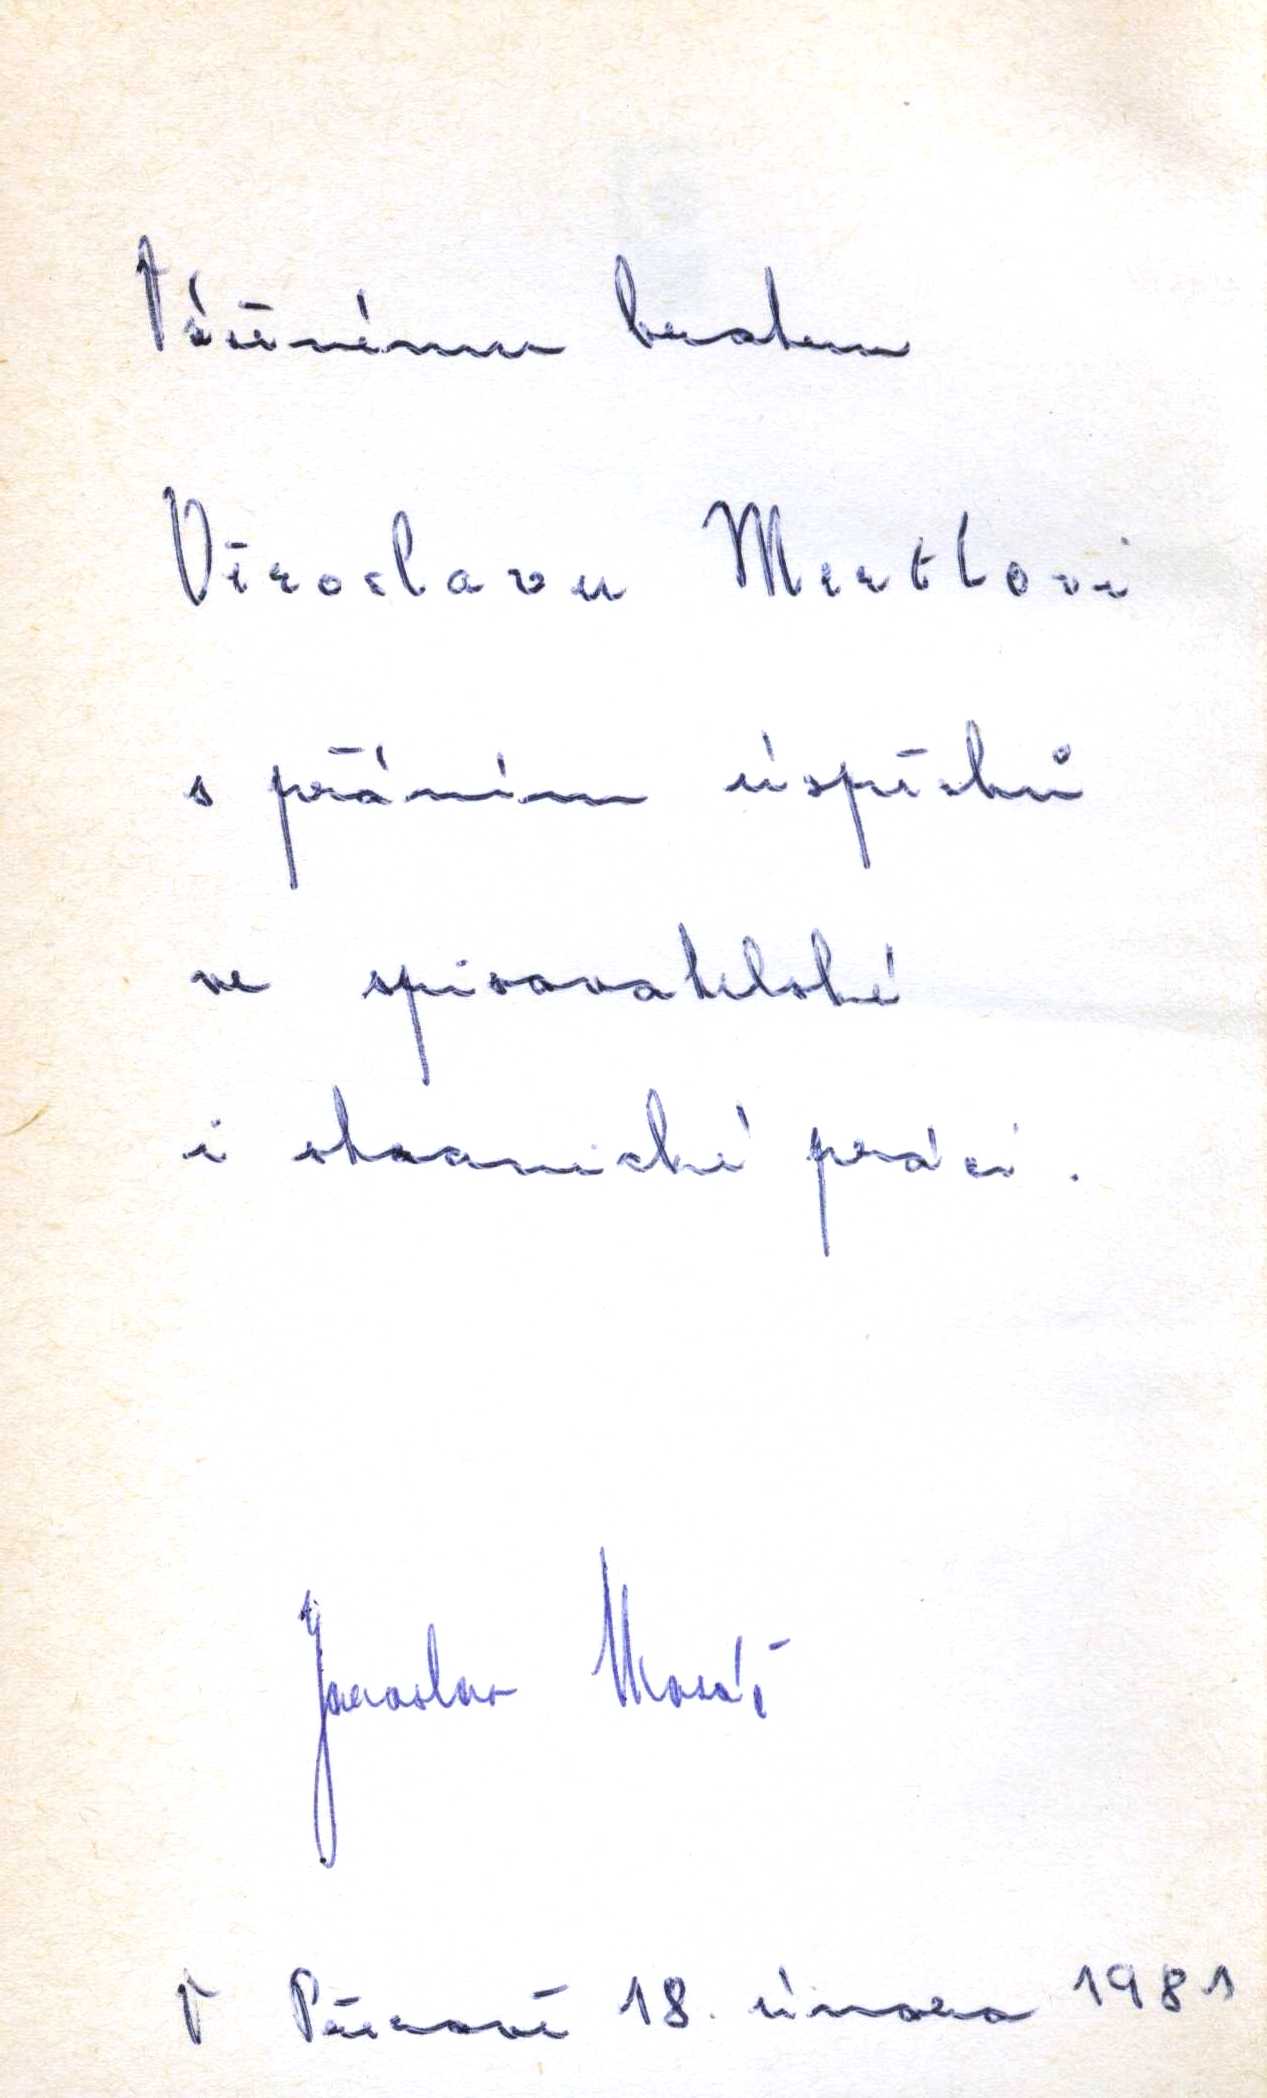 Váženému bratru
Věroslavu Mertlovi
s přáním úspěchů
ve spisovatelské
i stranické práci.
Jaroslav
V Přerově 18. února 1981